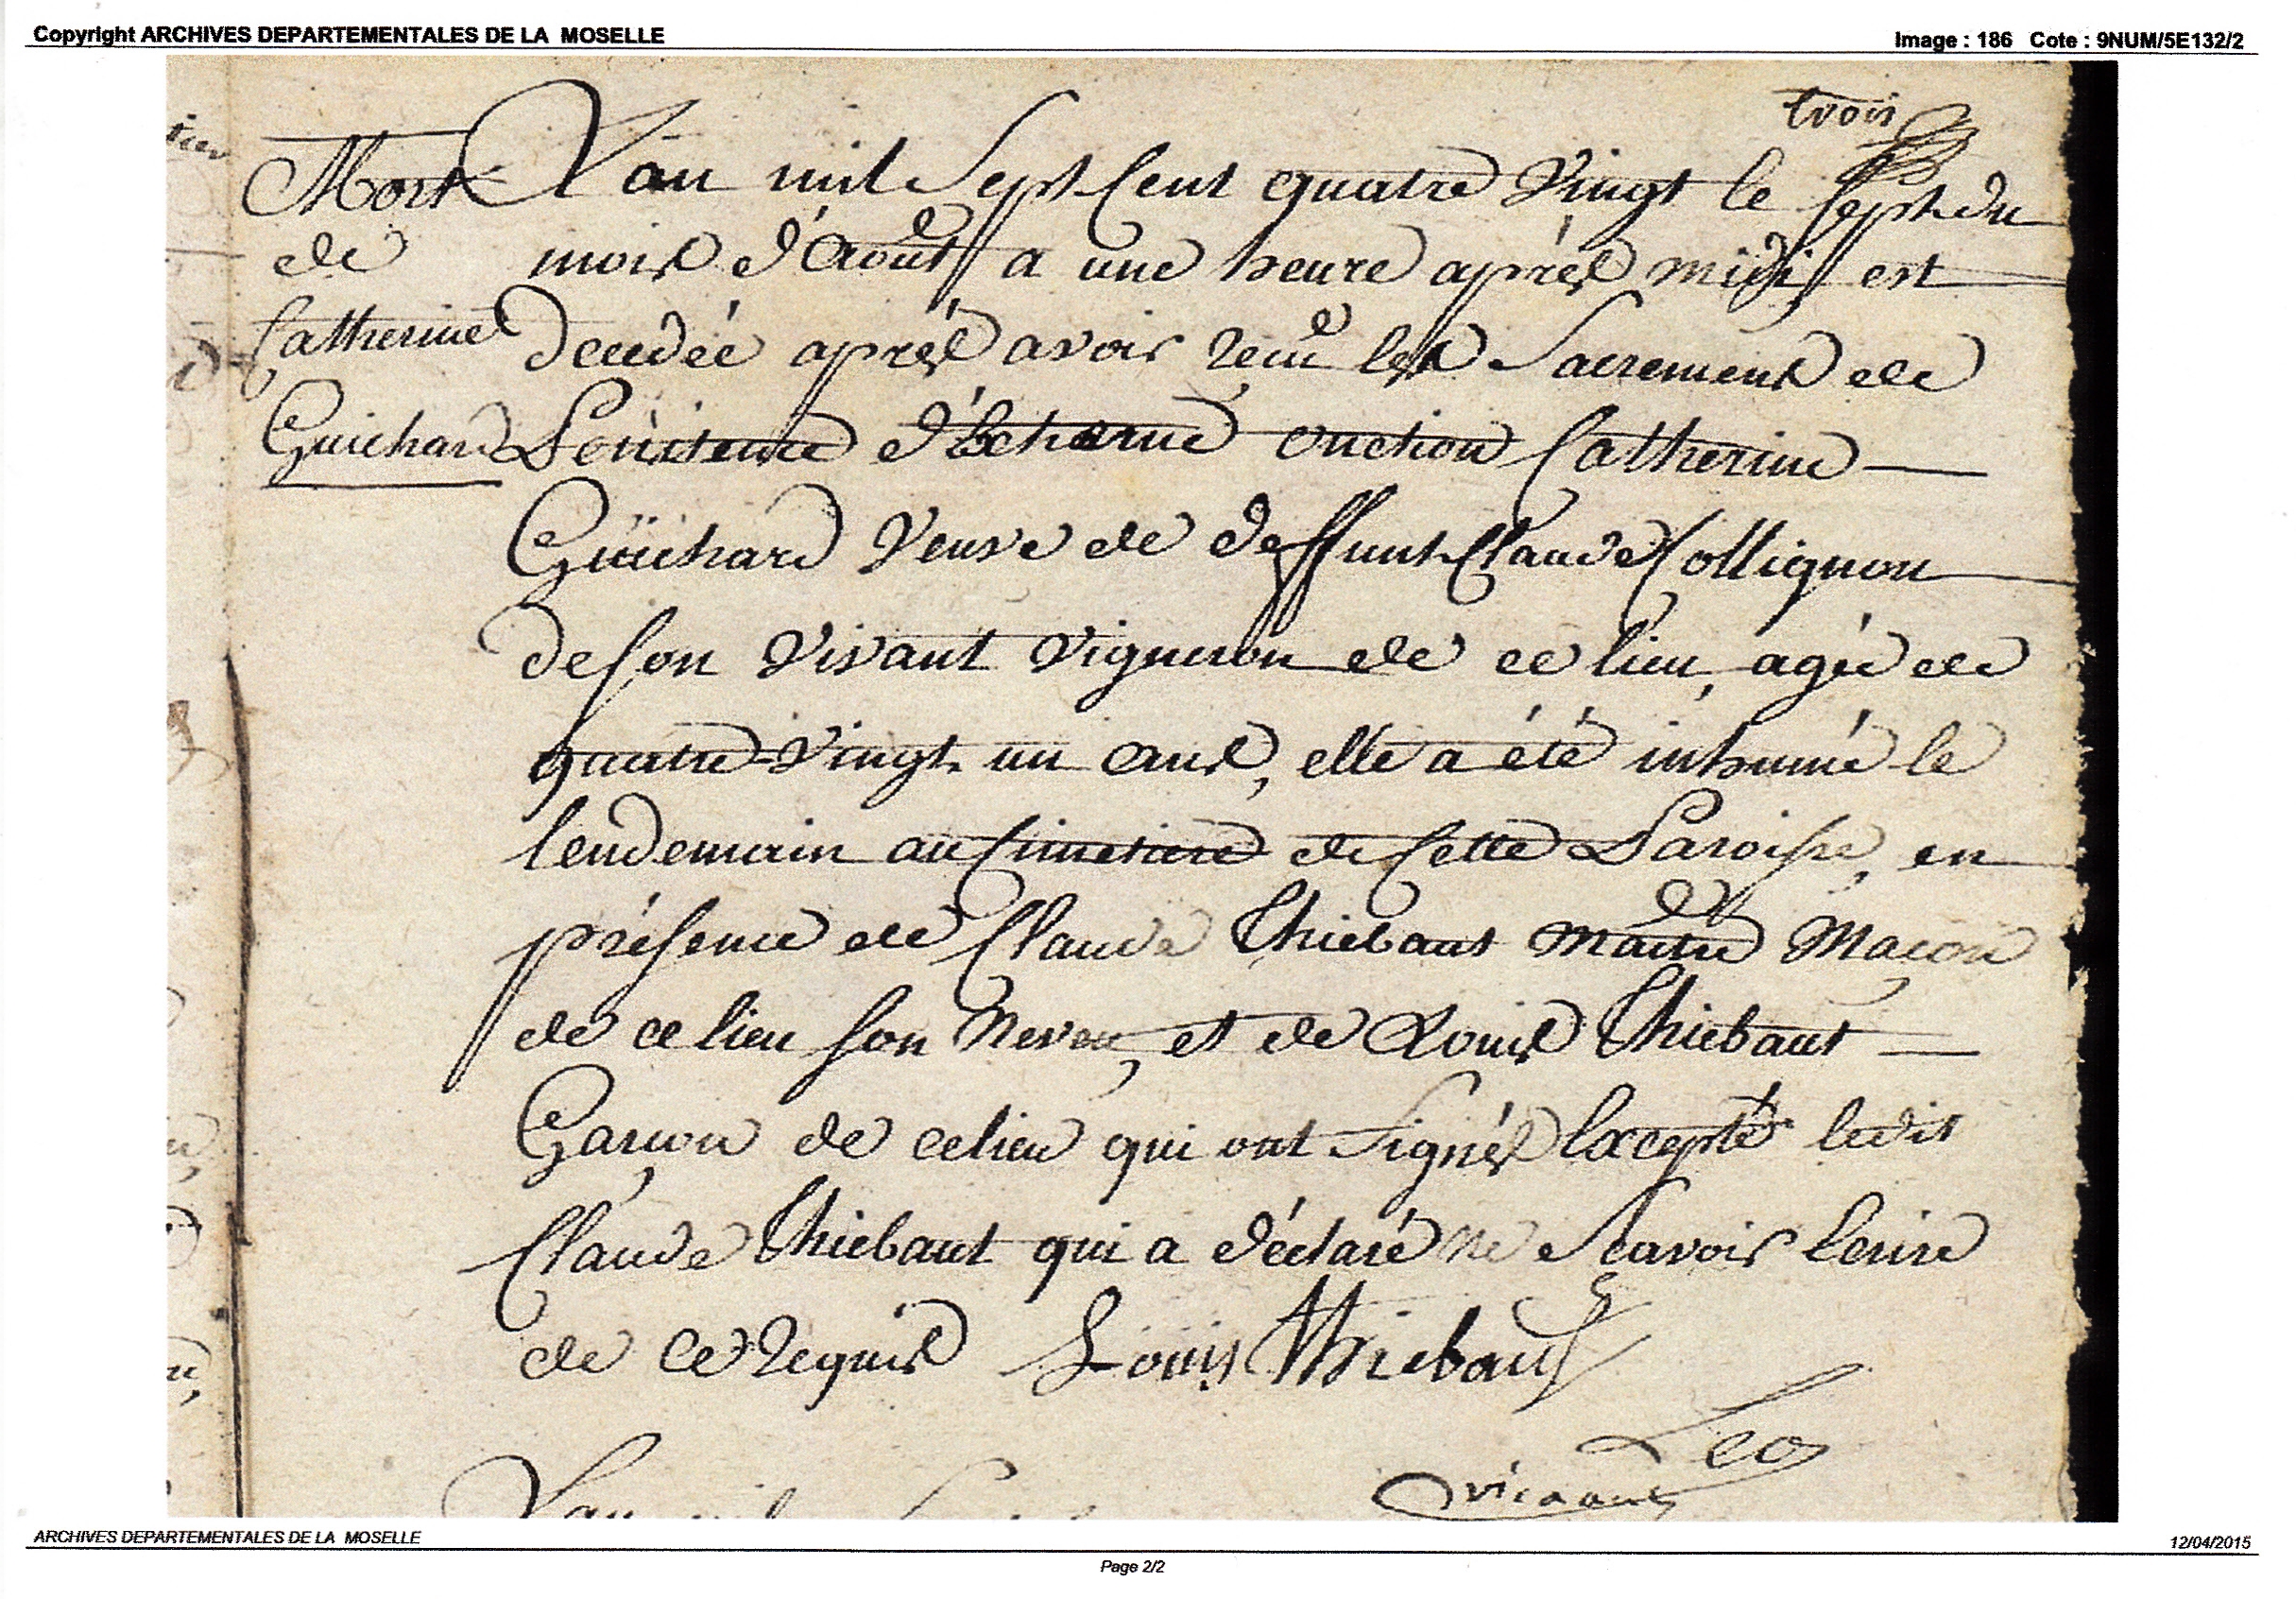 Copyright ARCHIVES DEPARTEMENTALES DE LA MOSELLE
Image : 186 Cote : 9NUM/5E132/2
trois
Mort
de
Catherine
Guichard
L'an mil Sept Cent quatre Vingt le Sept du
mois d'Août a une heure après midi est
decedée après avoir reçu les Sacrements de
Penitence d'Extreme onction Catherine
Guichard Veuve de deffunt Claude Collignon
de son Vivant Vigneron de ce lieu, agée de
quatre-Vingt un ans, elle a été inhumé le
lendemain au Cimetiere de Cette Paroisse, en
présence de Claude Thiebaut maitre Macon
de ce lieu son Neveu, et de Louis Thiebaut
Garçon de ce lieu qui ont Signés Excepté ledit
Claude Thiebaut qui a déclaré ne Scavoir Ecrire
de Ce requis Louis Thiebaut
Leo
vicaire
L'an
ARCHIVES DEPARTEMENTALES DE LA MOSELLE
12/04/2015
Page 2/2